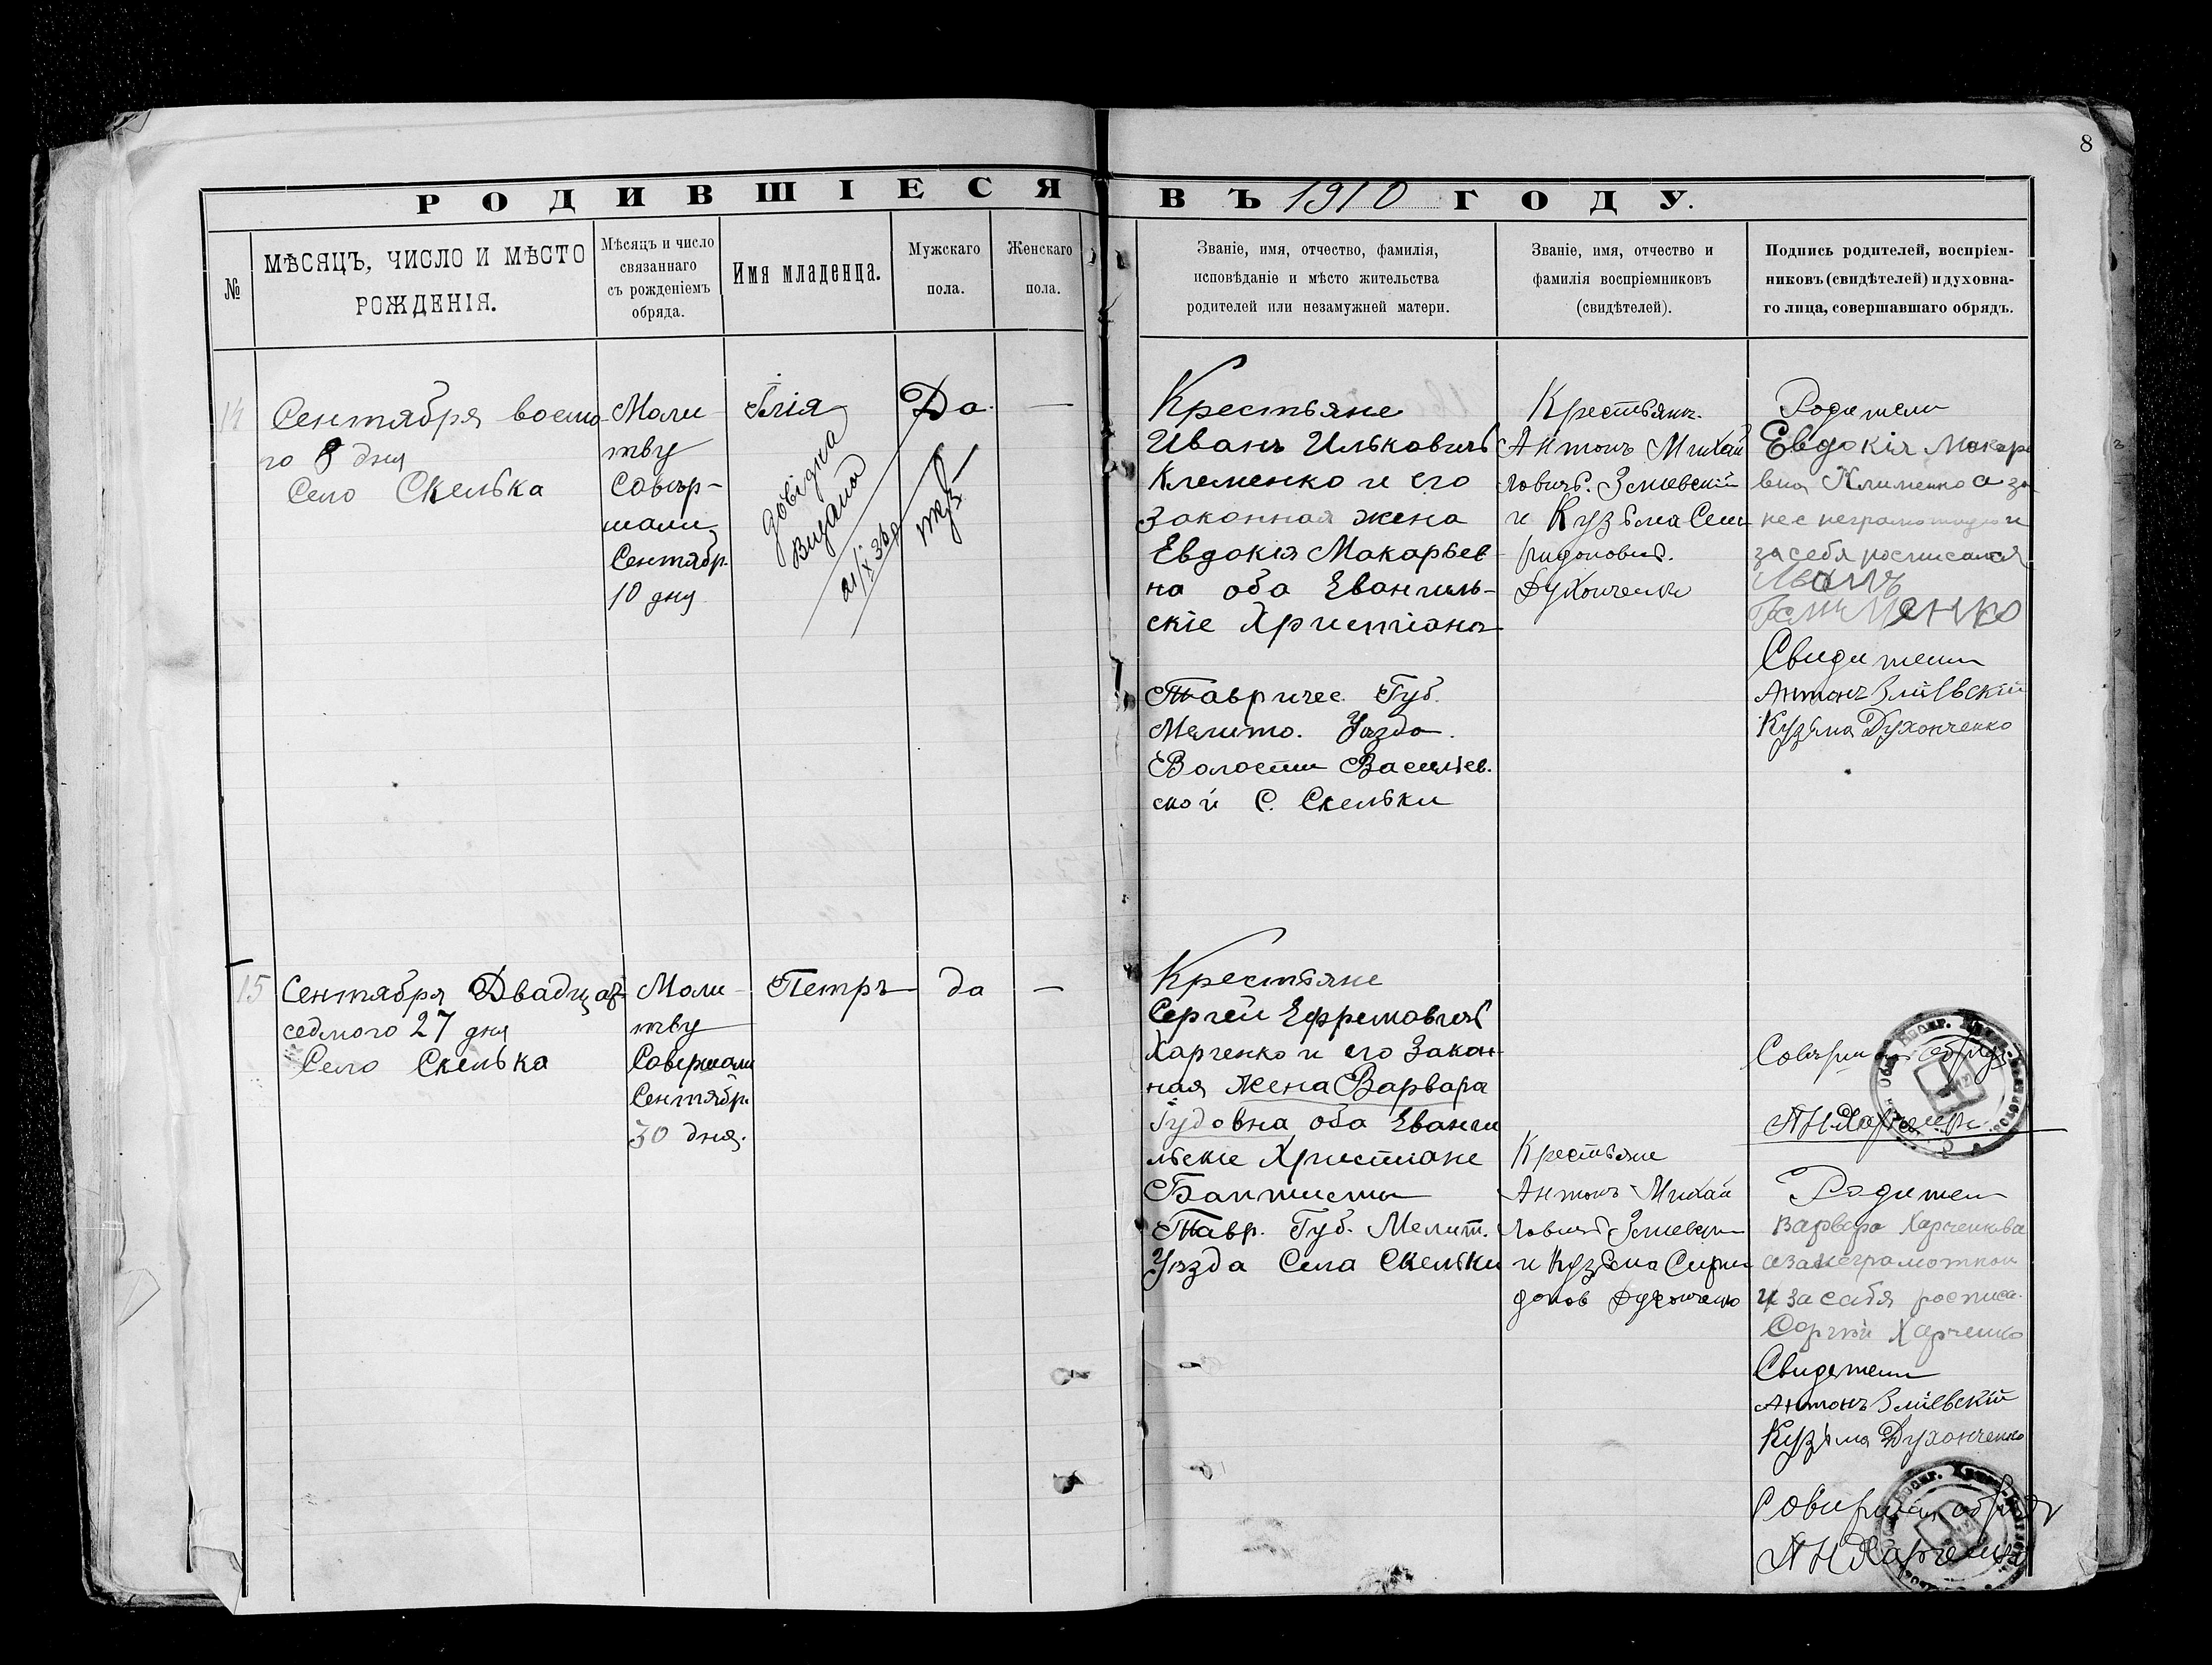 8
РОДИВШІЕСЯ ВЪ 1910 ГОДУ.
№
МѢСЯЦЪ, ЧИСЛО И МѢСТО
РОЖДЕНІЯ.
Мѣсяцъ и число
связаннаго
съ рожденіемъ
обряда.
Имя младенца.
Мужскаго
пола.
Женскаго
пола.
Званіе, имя, отчество, фамилія,
исповѣданіе и мѣсто жительства
родителей или незамужней матери.
Званіе, имя, отчество и
фамилія воспріемниковъ
(свидѣтелей).
Подпись родителей, воспріем-
никовъ (свидѣтелей) и духовна-
го лица, совершавшаго обрядъ.
14
Сентября восмо
го 8 дня
Село Скелька
Моли
тву
Совѣр-
шали
Сентябр.
10 дня
Ілія
довідка
видана
Да.
—
Крестьяне
Иванъ Ильковичъ
Клеменко и его
законная жена
Евдокія Макарьев
на оба Евангель-
скіе Христіана
Тавричес. Губ.
Мелито. Уѣзда.
Волости Васильев.
ской С. Скельки
Крестьяни.
Антонъ Михай
ловичъ. Змиевскій
и Кузьма Спи
ридоновичъ.
Духонченко
Родители
Евдокія Макарь
вна Клименко а за
нее неграмотную и
за себя росписался
Иванъ
Свидители
Антонъ Зміевскій
Кузьма Духонченко
Совершил обряд
АН Харченко
15
Сентября Двадцат
седмого 27 дня
Село Скелька
Моли-
тву
Совершали
Сентябр.
30 дня.
Петръ
да
—
Крестьяне
Сергей Ефремовичъ
Харченко и его Закон
ная Жена Варвара
оба Еванги
льскіе Христиане
Баптисты
Тавр. Губ. Мелит.
Уѣзда Села Скельки
Крестьяне
Антонъ Михай
ловичъ Змиевски
и Кузьма Спири
донов Духонченко
Родители
Варвара Харченкова
а за неграмотною
и за себя росписа.
Сергѣй Харченко
Свидетели
Антонъ Зміевскій
Кузьма Духонченко
Совершил обряд
АН Харченко